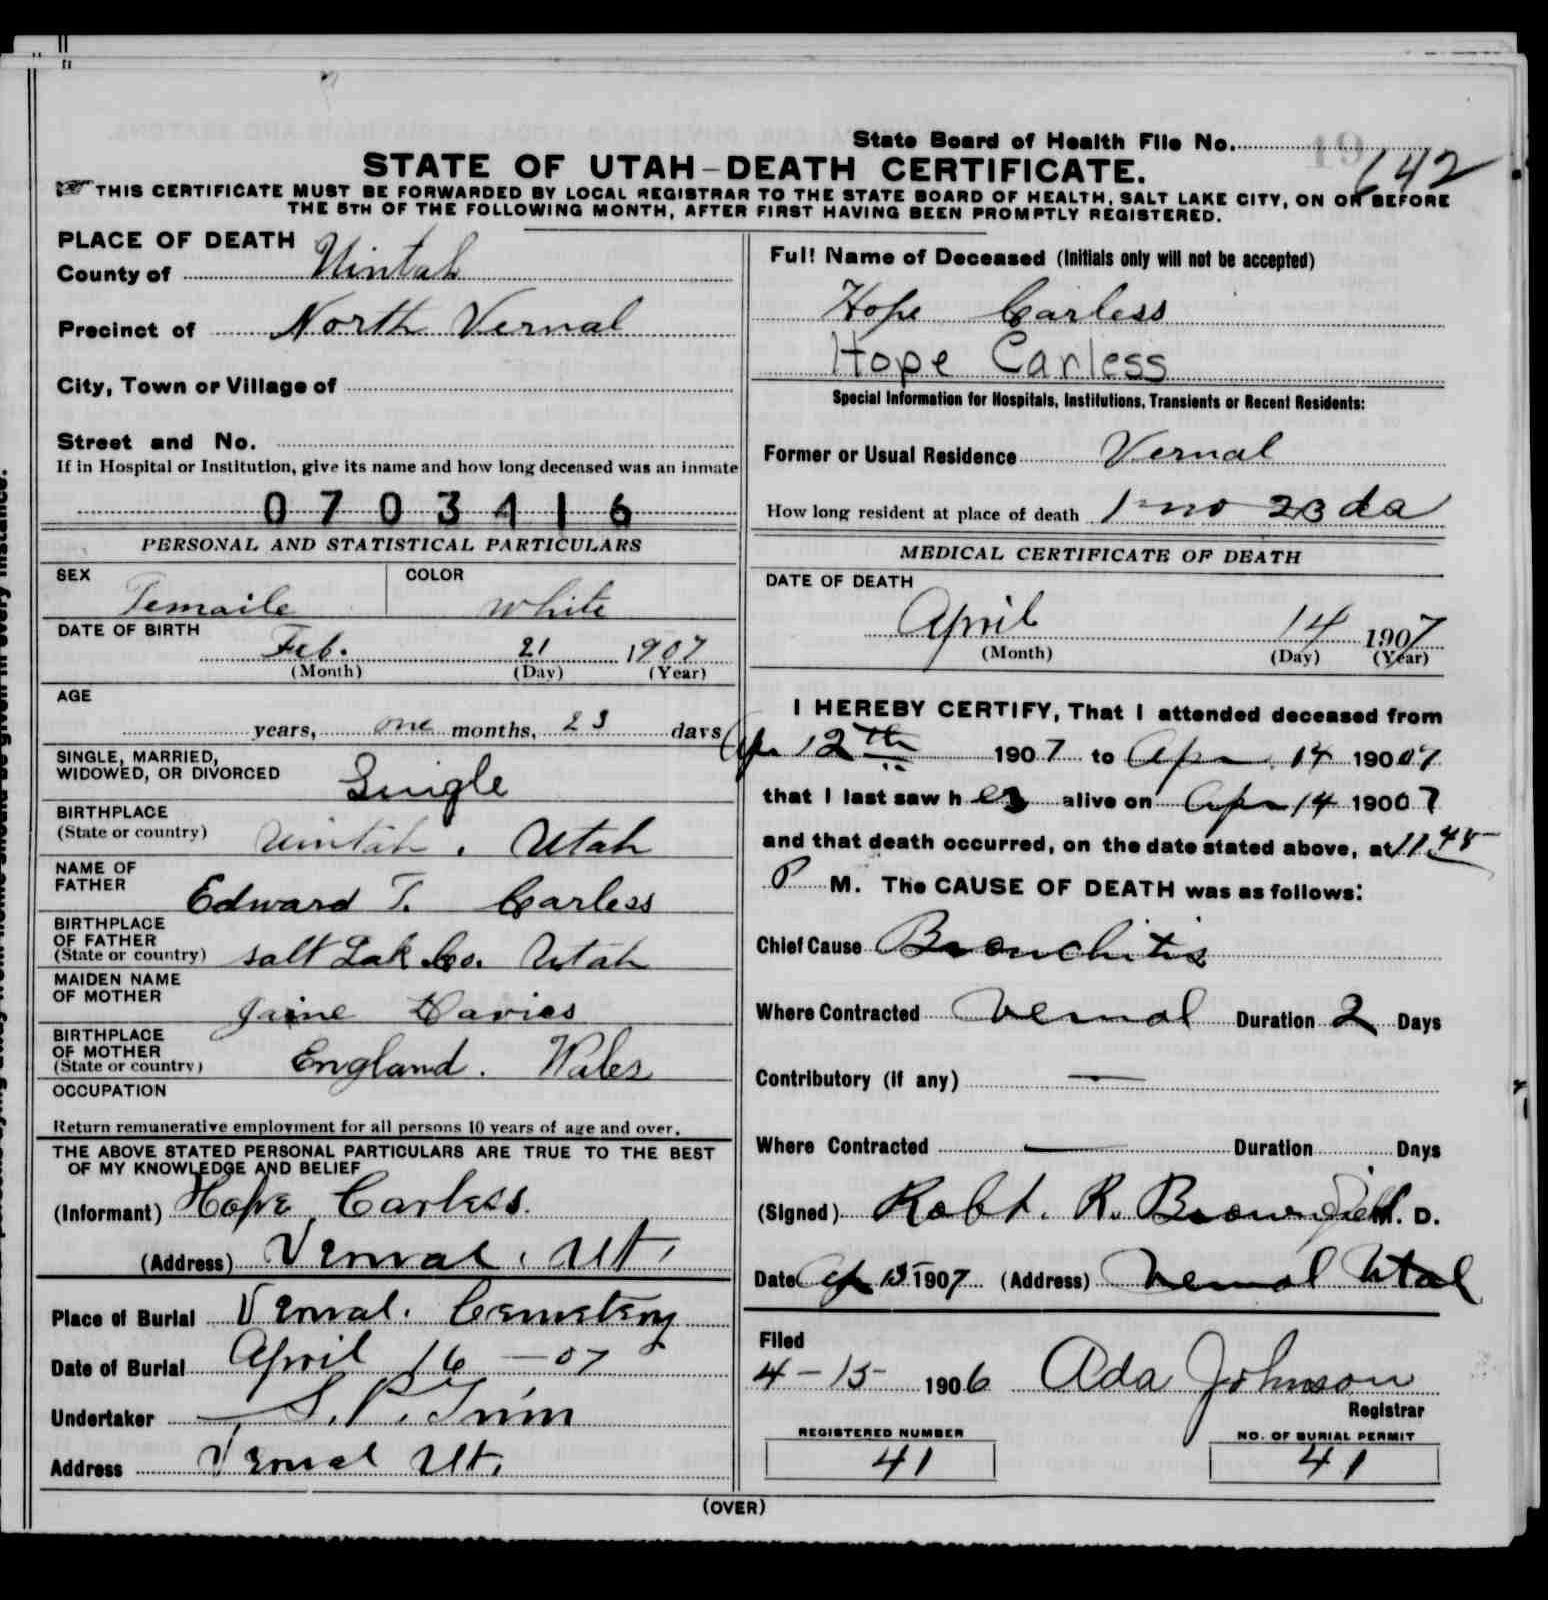 State Board of Health File No. 642
STATE OF UTAH-DEATH CERTIFICATE.
THIS CERTIFICATE MUST BE FORWARDED BY LOCAL REGISTRAR TO THE STATE BOARD OF HEALTH, SALT LAKE CITY, ON OR BEFORE
THE 5TH OF THE FOLLOWING MONTH, AFTER FIRST HAVING BEEN PROMPTLY REGISTERED.
PLACE OF DEATH
County of Uintah
Precinct of North Vernal
City, Town or Village of
Street and No.
If in Hospital or Institution, give its name and how long deceased was an inmate
0703416
PERSONAL AND STATISTICAL PARTICULARS
SEX COLOR
Femaile white
DATE OF BIRTH
Feb. 21 1907
(Month) (Day) (Year)
AGE
years, one months, 23 days
SINGLE, MARRIED,
WIDOWED, OR DIVORCED Single
BIRTHPLACE
(State or country) Uintah, Utah
NAME OF
FATHER Edward T. Carless
BIRTHPLACE
OF FATHER
(State or country) Salt Lak Co. Utah
MAIDEN NAME
OF MOTHER
Jaine Davies
BIRTHPLACE
OF MOTHER
(State or country) England. Wales
OCCUPATION
Return remunerative employment for all persons 10 years of age and over.
THE ABOVE STATED PERSONAL PARTICULARS ARE TRUE TO THE BEST
OF MY KNOWLEDGE AND BELIEF
(Informant) Hope Carless.
(Address) Vernal, Ut,
Place of Burial Vernal. Cemetery
Date of Burial April 16 - 07
Undertaker S. P. Trim
Address Vernal Ut,
Full Name of Deceased (Initials only will not be accepted)
Hope Carless
Hope Carless
Special Information for Hospitals, Institutions, Transients or Recent Residents:
Former or Usual Residence Vernal
How long resident at place of death 1 mo 23 da
MEDICAL CERTIFICATE OF DEATH
DATE OF DEATH
April 14 1907
(Month) (Day) (Year)
I HEREBY CERTIFY, That I attended deceased from
Apr 12th 1907 to Apr 14 19007
that I last saw her alive on Apr 14 19007
and that death occurred, on the date stated above, at 11 45
P M. The CAUSE OF DEATH was as follows:
Chief Cause Bronchitis
Where Contracted Vernal Duration 2 Days
Contributory (if any) —
Where Contracted — Duration Days
(Signed) Robt. R. Brownfield M. D.
Date Apr 15 1907 (Address) Vernal Utah
Filed
4-15 1906 Ada Johnson
Registrar
REGISTERED NUMBER NO. OF BURIAL PERMIT
41 41
(OVER)